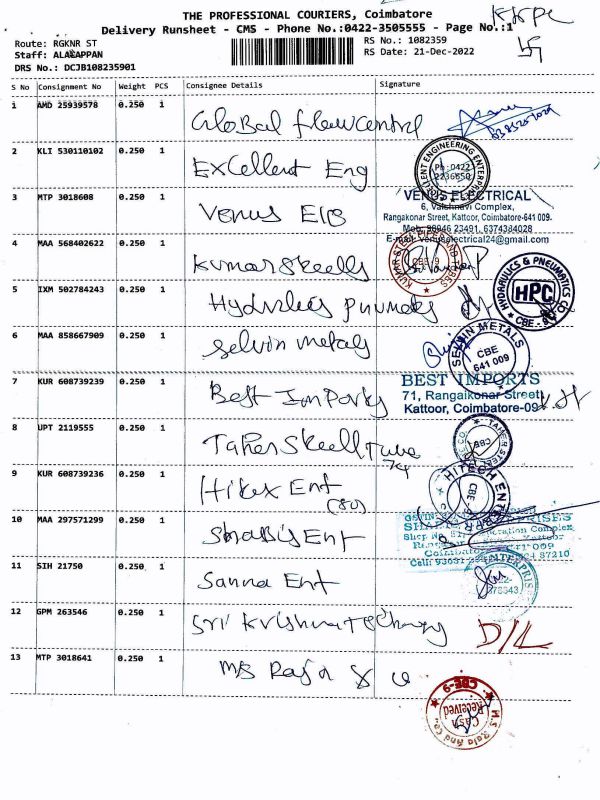 THE PROFESSIONAL COURIERS, Coimbatore
Delivery Runsheet - CMS - Phone No.:0422-3505555 - Page No.:1
Route: RGKNR ST
Staff: ALAGAPPAN
DRS No.: DCJB108235901
RS No.: 1082359
RS Date: 21-Dec-2022
S No Consignment No Weight PCS Consignee Details Signature
1 AMD 25939578 0.250 1 Global flowcentrl
2 KLI 530110102 0.250 1 Excellent Eng
ELLENT ENGINEERING ENTERPRI
Ph: 0422
2236650
3 MTP 3018608 0.250 1 Venus Ele
VENUS ELECTRICAL
6, Vaishnavi Complex,
Rangakonar Street, Kattoor, Coimbatore-641 009.
Mob: 98946 23491, 6374384028
E-mail: venuselectrical24@gmail.com
4 MAA 568402622 0.250 1 Kumar Skeells
5 IXM 502784243 0.250 1 Hydrulics pnumatcs
HYDRAULICS & PNEUMATICS CO
HPC
CBE - 9
6 MAA 858667909 0.250 1 Selvin metals
SELVIN METALS
CBE
641 009
7 KUR 608739239 0.250 1 Best Imports
BEST IMPORTS
71, Rangaikonar Street
Kattoor, Coimbatore-09
8 UPT 2119555 0.250 1 Taher Skeell Tube
74
9 KUR 608739236 0.250 1 Hitex Ent
(80)
HITECH ENTERPR
CBE
10 MAA 297571299 0.250 1 Shabi's Ent
11 SIH 21750 0.250 1 Sanna Ent
12 GPM 263546 0.250 1 Sri Krishna Techngy D/L
13 MTP 3018641 0.250 1 M/S Raja & Co
CBE-9
Cash
Received
M.S. Raja And Co.